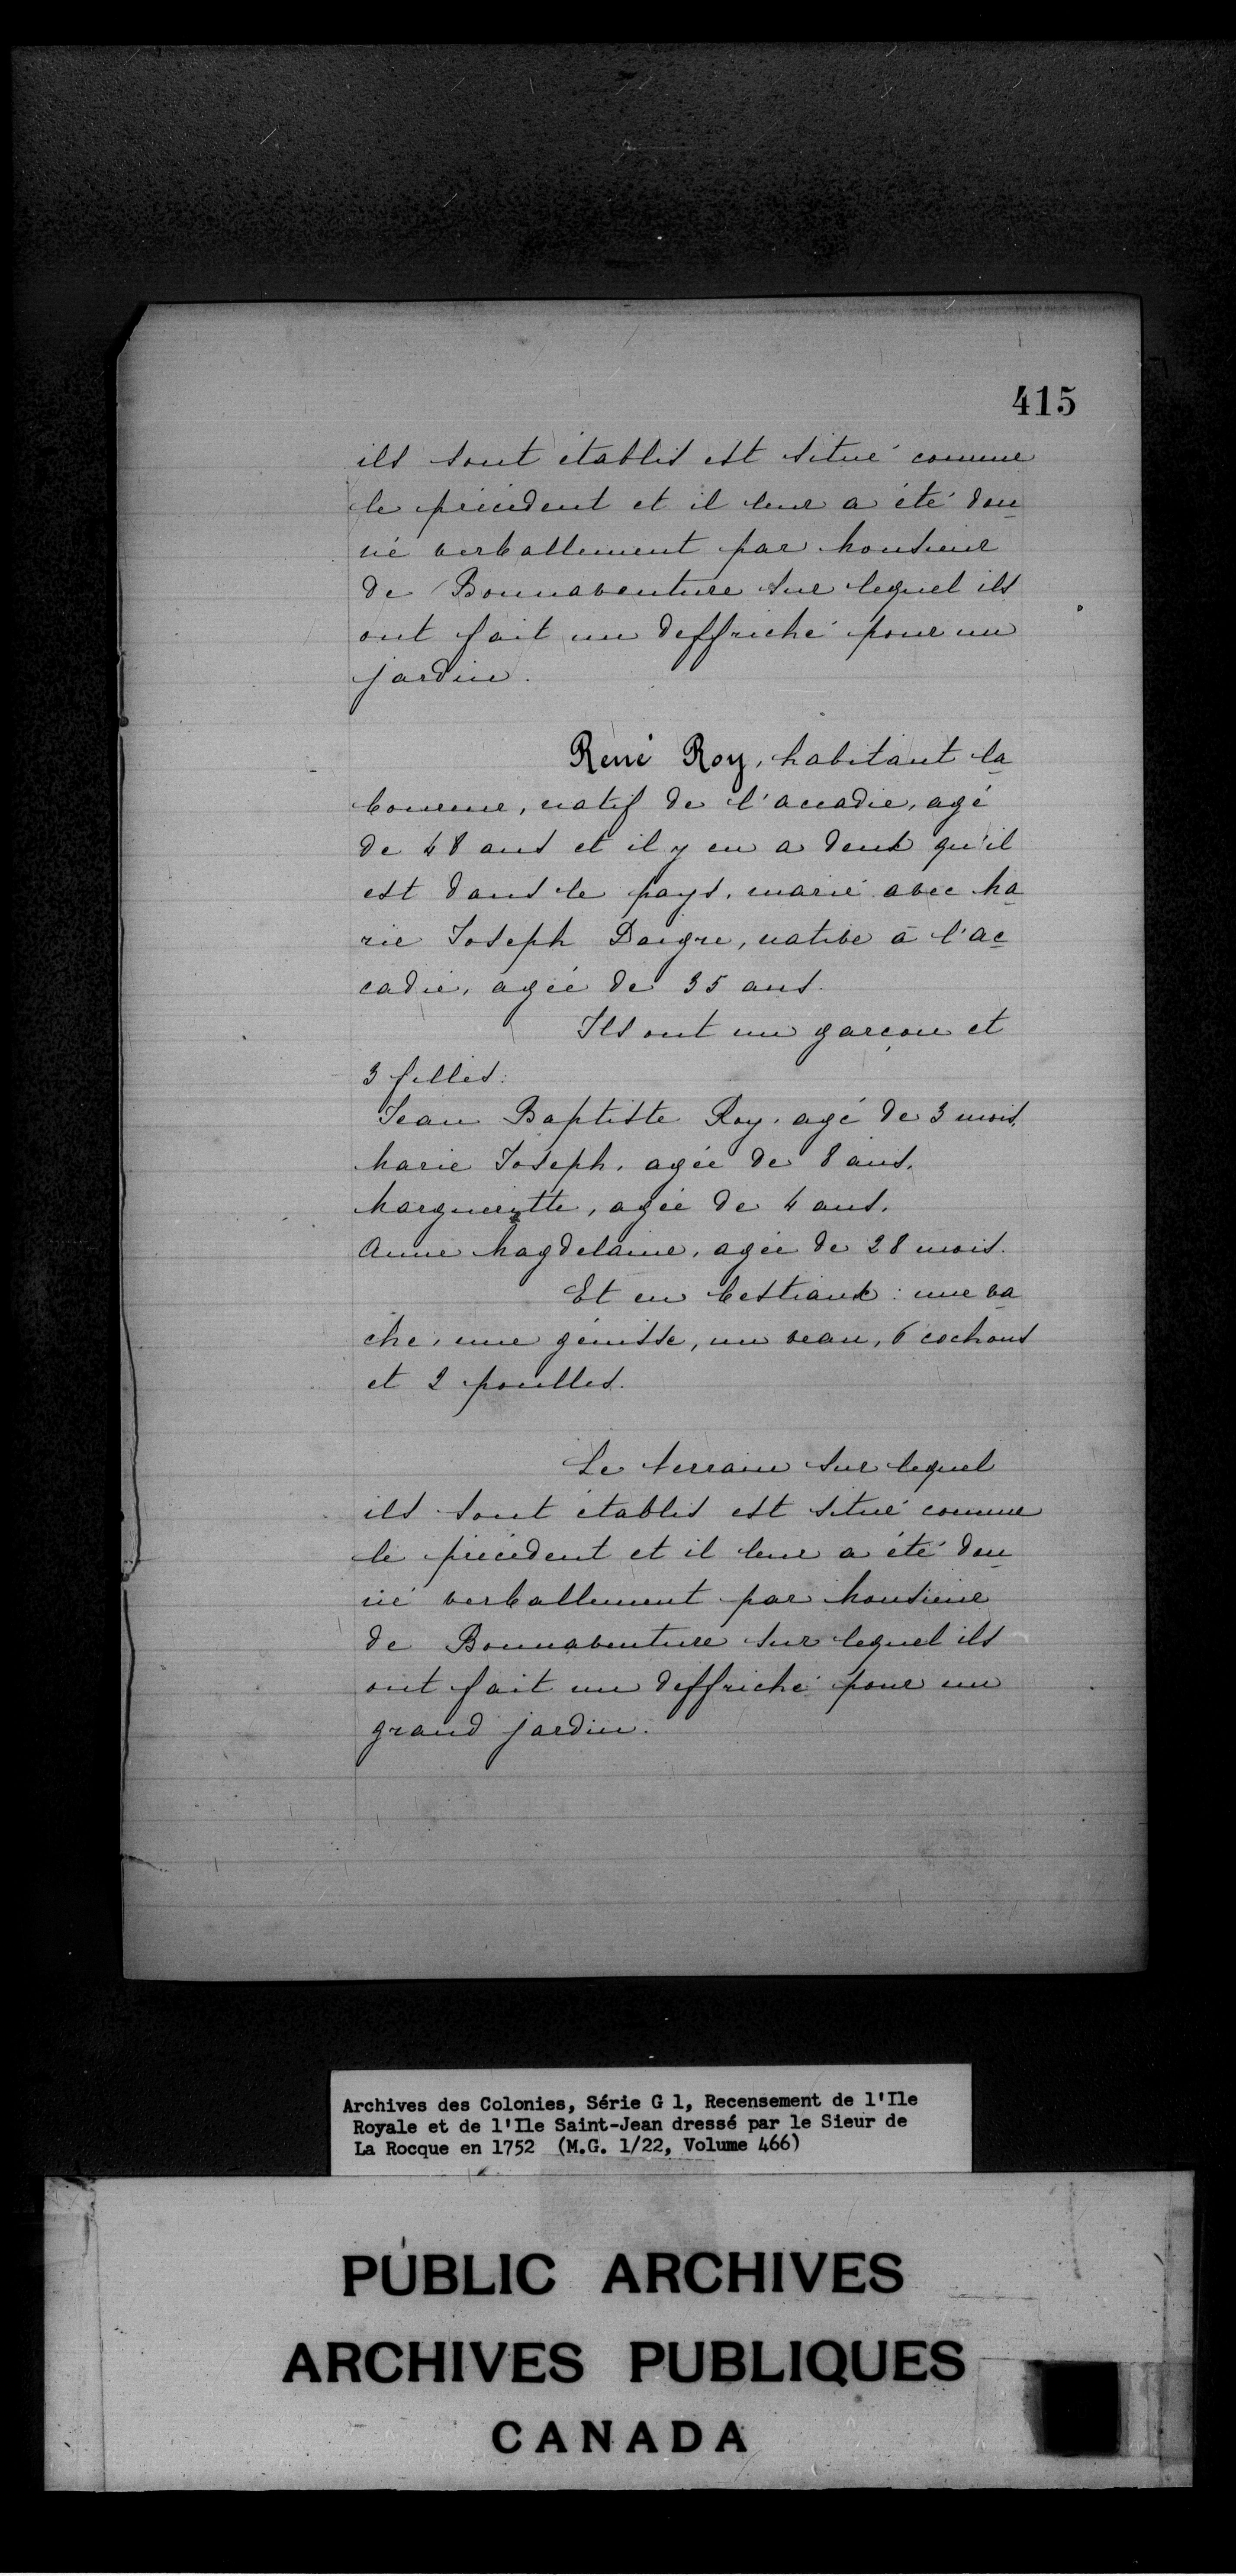 415
ils sont établis est situé comme
le précédent et il leur a été don
né verballement par Monsieur
de Bonnaventure sur lequel ils
ont fait un deffriché pour un
jardin.
René Roy, habitant la
boureur, natif de l'accadie, agé
de 48 ans et il y en a deux qu'il
est dans le pays, marié avec Ma
rie Joseph Daigre, native à l'ac
cadie, agée de 35 ans.
Ils ont un garçon et
3 filles:
Jean Baptiste Roy, agé de 3 mois.
Marie Joseph, agée de 8 ans.
Margueritte, agée de 4 ans.
Anne Magdelaine, agée de 28 mois.
Et en bestiaux: une va
che, une génisse, un veau, 6 cochons
et 2 poulles.
Le terrain sur lequel
ils sont établis est situé comme
le précédent et il leur a été don
né verballement par Monsieur
de Bonnaventure sur lequel ils
ont fait un deffriché pour un
grand jardin.
Archives des Colonies, Série G 1, Recensement de l'Ile
Royale et de l'Ile Saint-Jean dressé par le Sieur de
La Rocque en 1752 (M.G. 1/22, Volume 466)
PUBLIC ARCHIVES
ARCHIVES PUBLIQUES
CANADA